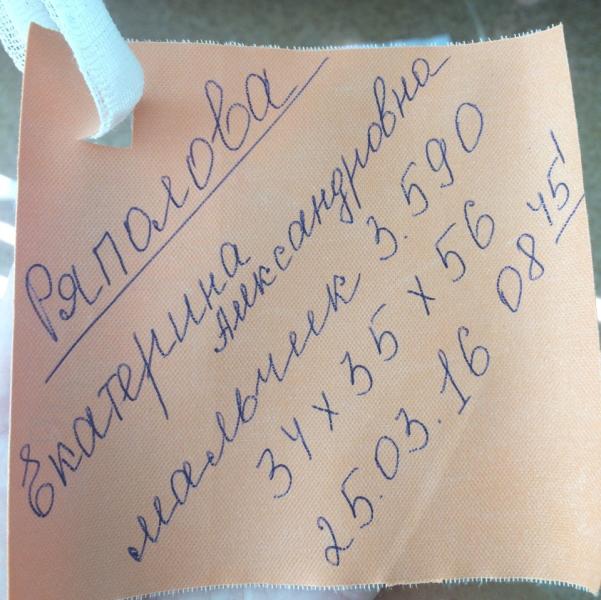 Ряполова
Екатерина
Александровна
мальчик 3.590
34 х 35 х 56
25.03.16 08 45'